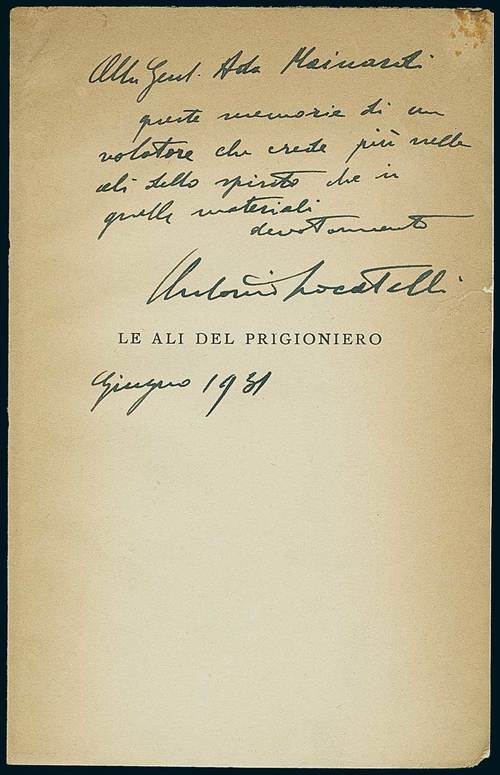 Alla Gent. Ada Mainardi
queste memorie di un
volatore che crede più nelle
ali dello spirito che in
quelle materiali
devotamente
Antonio Locatelli
LE ALI DEL PRIGIONIERO
Giugno 1931